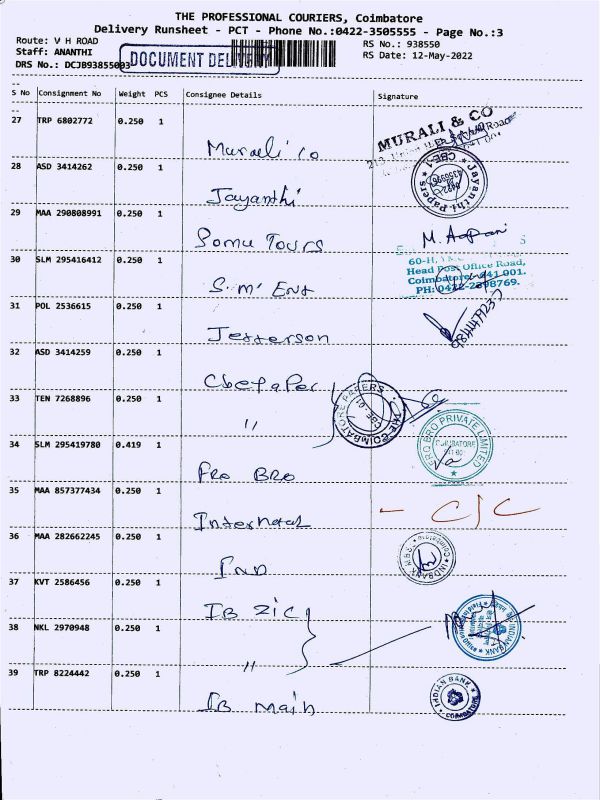 THE PROFESSIONAL COURIERS, Coimbatore
Delivery Runsheet - PCT - Phone No.:0422-3505555 - Page No.:3
Route: V H ROAD
RS No.: 938550
Staff: ANANTHI
RS Date: 12-May-2022
DRS No.: DCJB93855003
DOCUMENT DELIVERY
S No Consignment No Weight PCS Consignee Details Signature
27 TRP 6802772 0.250 1
Murali co
MURALI & CO
28 ASD 3414262 0.250 1
Jayanthi
Jayanthi Papers
CBE-1
29 MAA 290808991 0.250 1
Somu Tours
M.
30 SLM 295416412 0.250 1
S.M' Ent
60-H,
Head Post Office Road,
Coimbatore-641 001.
PH: 0422-2398769.
31 POL 2536615 0.250 1
Jefferson
32 ASD 3414259 0.250 1
Cbe Paper
THE COIMBATORE PAPERS
CBE-01
33 TEN 7268896 0.250 1
"
34 SLM 295419780 0.419 1
Pro Bro
PRO BRO PRIVATE LIMITED
COIMBATORE
35 MAA 857377434 0.250 1
- C/C
36 MAA 282662245 0.250 1
Ind
INDBANK MBS. Coimbatore
37 KVT 2586456 0.250 1
IB ZIC
INDIAN BANK
38 NKL 2970948 0.250 1
"
39 TRP 8224442 0.250 1
IB Main
INDIAN BANK
COIMBATORE